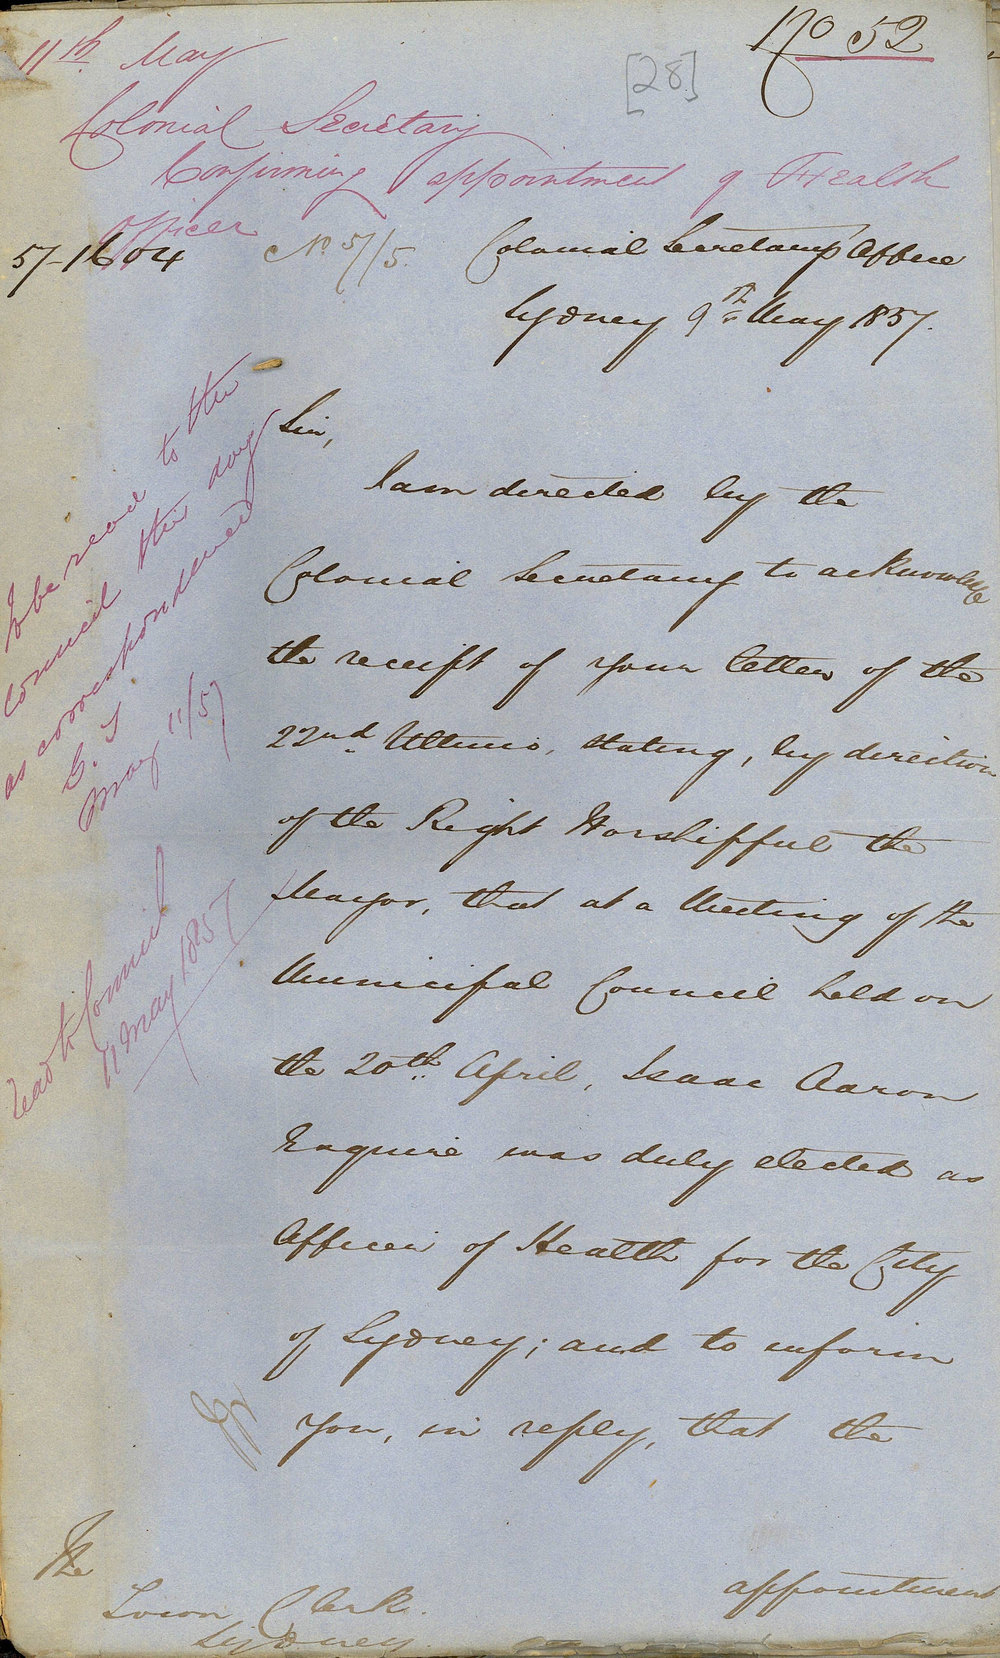 No 52
[28]
11th May
Colonial Secretary
Confirming appointment of Health
Officer
57-1604
No 57/5.
Colonial Secretary's Office
Sydney 9th May 1857.
Sir,
I am directed by the
Colonial Secretary to acknowledge
the receipt of your letter of the
22nd Ultimo, stating, by direction
of the Right Worshipful the
Mayor, that at a Meeting of the
Municipal Council held on
the 20th April, Isaac Aaron
Esquire was duly elected as
Officer of Health for the City
of Sydney; and to inform
you, in reply, that the
appointment
The
Town Clerk.
Sydney.
To be read to the
Council this day
as correspondence
May 11/57
Read to Council
11 May 1857